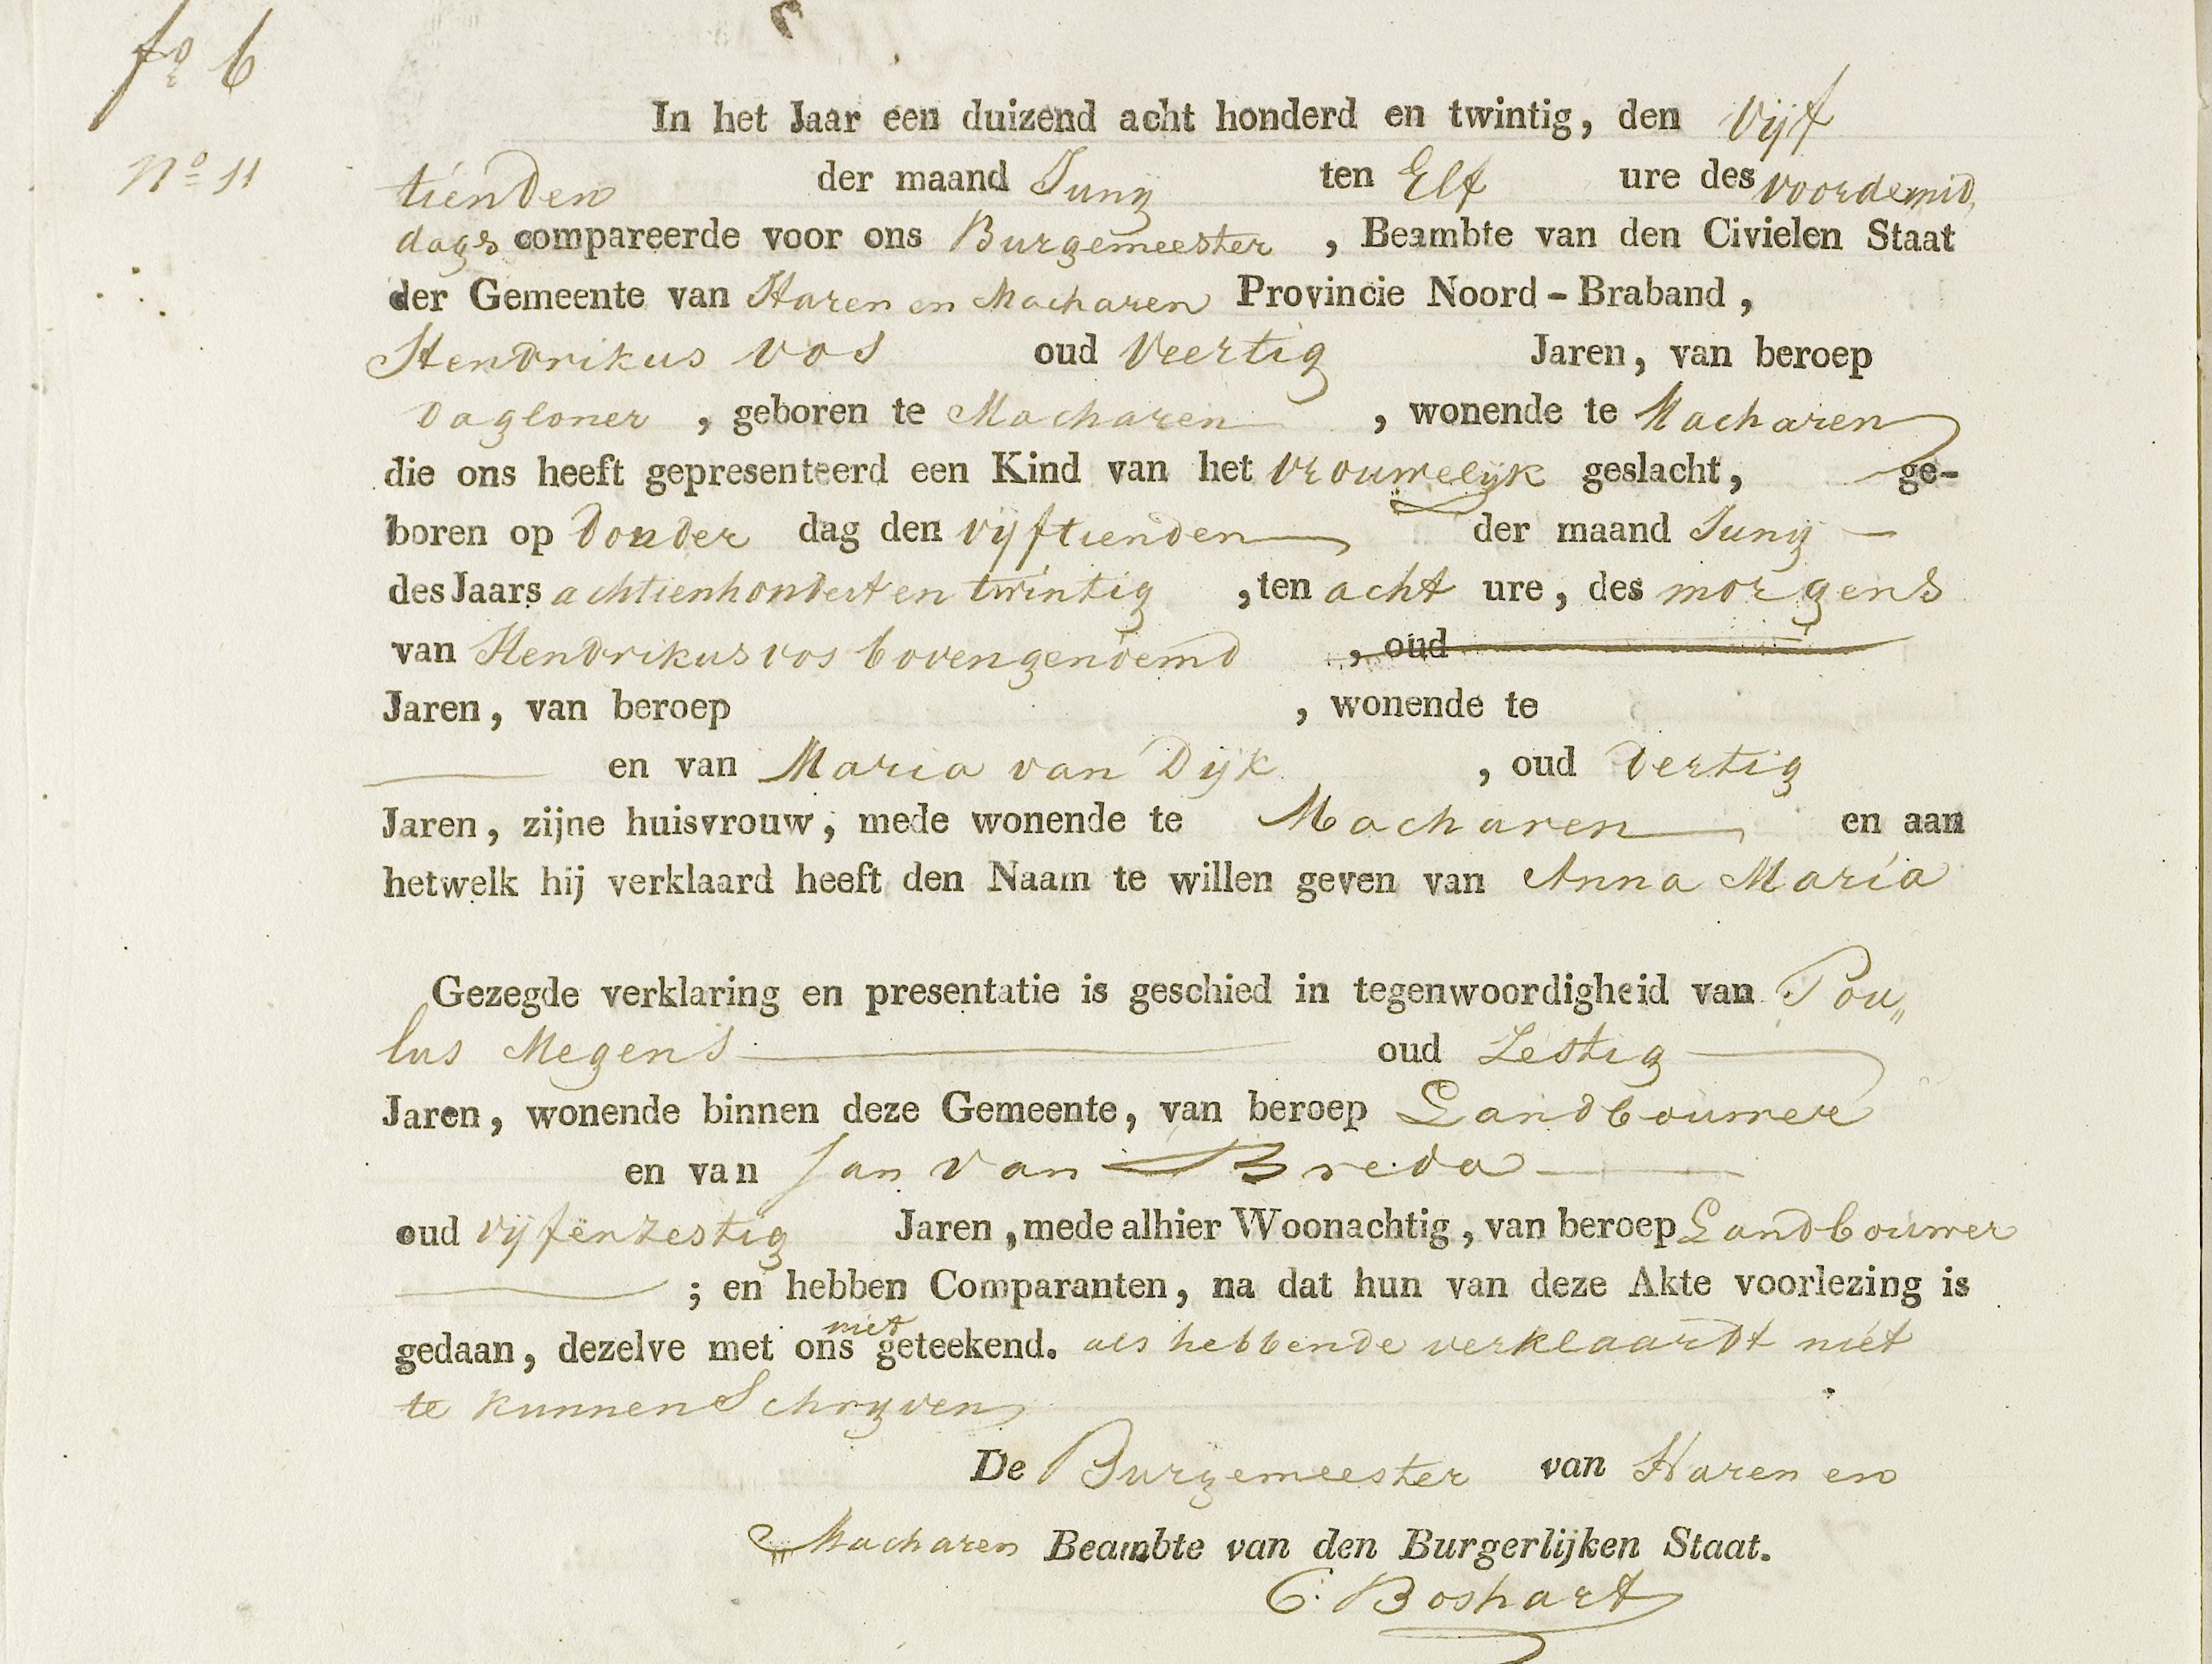 fo 6
No 11
In het Jaar een duizend acht honderd en twintig, den vijf
tienden der maand Junij ten Elf ure des voordemid,
dags compareerde voor ons Burgemeester , Beambte van den Civielen Staat
der Gemeente van Haren en Macharen Provincie Noord-Braband,
Hendrikus vos oud veertig Jaren, van beroep
dagloner , geboren te Macharen , wonende te Macharen
die ons heeft gepresenteerd een Kind van het vrouwelijk geslacht, ge-
boren op donder dag den vijftienden der maand Junij
des Jaars achtienhondert en twintig , ten acht ure, des morgens
van Hendrikus vos bovengenoemd , oud
Jaren, van beroep , wonende te
en van Maria van Dijk , oud dertig
Jaren, zijne huisvrouw, mede wonende te Macharen en aan
hetwelk hij verklaard heeft den Naam te willen geven van Anna Maria
Gezegde verklaring en presentatie is geschied in tegenwoordigheid van Pou„
lus Megens oud Zestig
Jaren, wonende binnen deze Gemeente, van beroep Landbouwer
en van Jan van Breda
oud vijfenzestig Jaren, mede alhier Woonachtig, van beroep Landbouwer
; en hebben Comparanten, na dat hun van deze Akte voorlezing is
gedaan, dezelve met ons niet geteekend. als hebbende verklaardt niet
te kunnen Schrijven
De Burgemeester van Haren en
Macharen Beambte van den Burgerlijken Staat.
C. Boshart